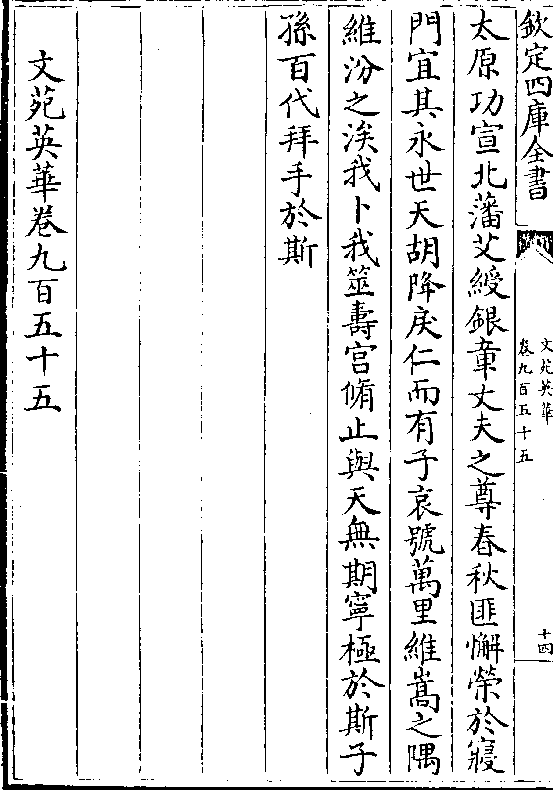 欽定四庫全書
文苑英華
卷九百五十五
十四
太原功宣北藩艾綬銀章丈夫之尊春秋匪懈榮於寢
門宜其永世天胡降戾仁而有子哀號萬里維嵩之隅
維汾之涘我卜我筮壽宫脩止與天無期寧極於斯子
孫百代拜手於斯
文苑英華卷九百五十五